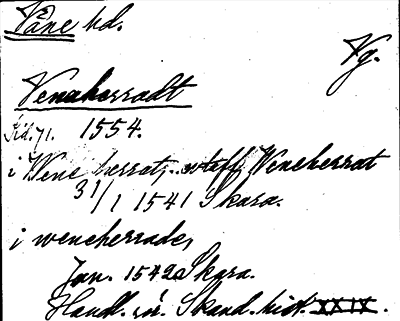 Våne hd.
Vg.
Venaherradt
1554.
i Wene herrat, .. aff Weneherrat
31/1 1541 Skara.
i weneherrade,
Jan. 1542 Skara.
Handl. rör. Skand. hist. XXIX.